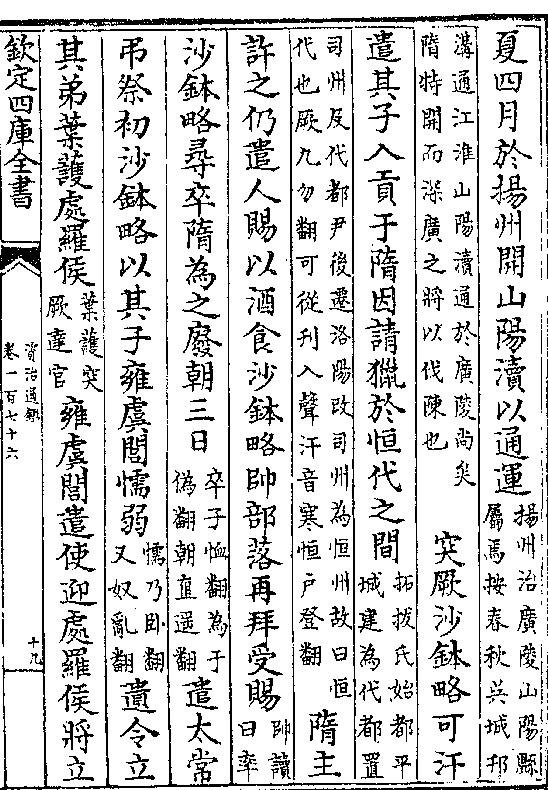 夏四月於揚州開山陽瀆以通運揚州治廣陵山陽縣屬焉按春秋吳城邗
溝通江淮山陽瀆通於廣陵尚矣隋特開而深廣之將以伐陳也突厥沙鉢略可汗
遣其子入貢于隋因請獵於恒代之間拓拔氏始都平城建為代都置
司州及代都尹後遷洛陽改司州為恒州故曰恒代也厥九勿翻可從刊入聲汗音寒恒户登翻隋主
許之仍遣人賜以酒食沙鉢略帥部落再拜受賜帥讀曰率
沙鉢略尋卒隋為之廢朝三日卒子恤翻為于偽翻朝直遥翻遣太常
弔祭初沙鉢略以其子雍虞閭懦弱懦乃卧翻又奴亂翻遺令立
其弟葉護處羅侯葉護突厥達官雍虞閭遣使迎處羅侯將立
欽定四庫全書
資治通鑑
卷一百七十六
十九